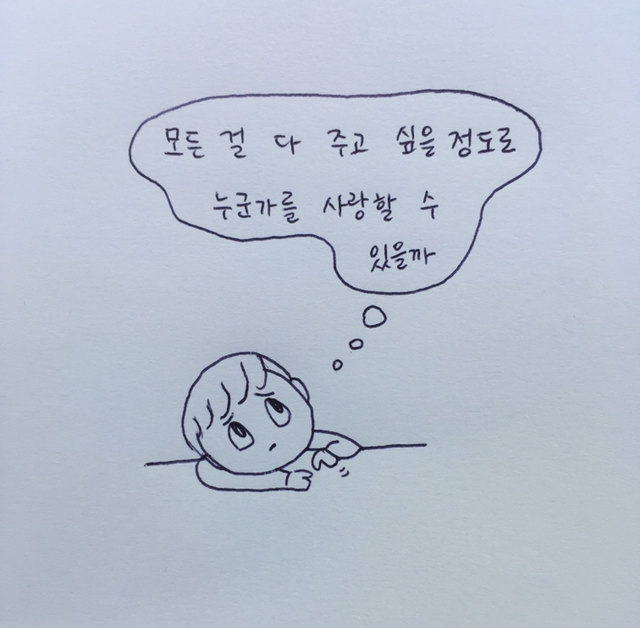 모든 걸 다 주고 싶을 정도로
누군가를 사랑할 수
있을까